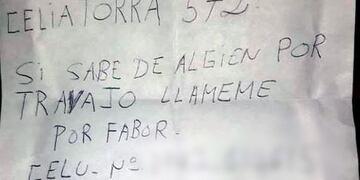 CELIA TORRA 572.
SI SABE DE ALGIEN POR
TRAVAJO LLAMEME
POR FABOR.
CELU- Nº